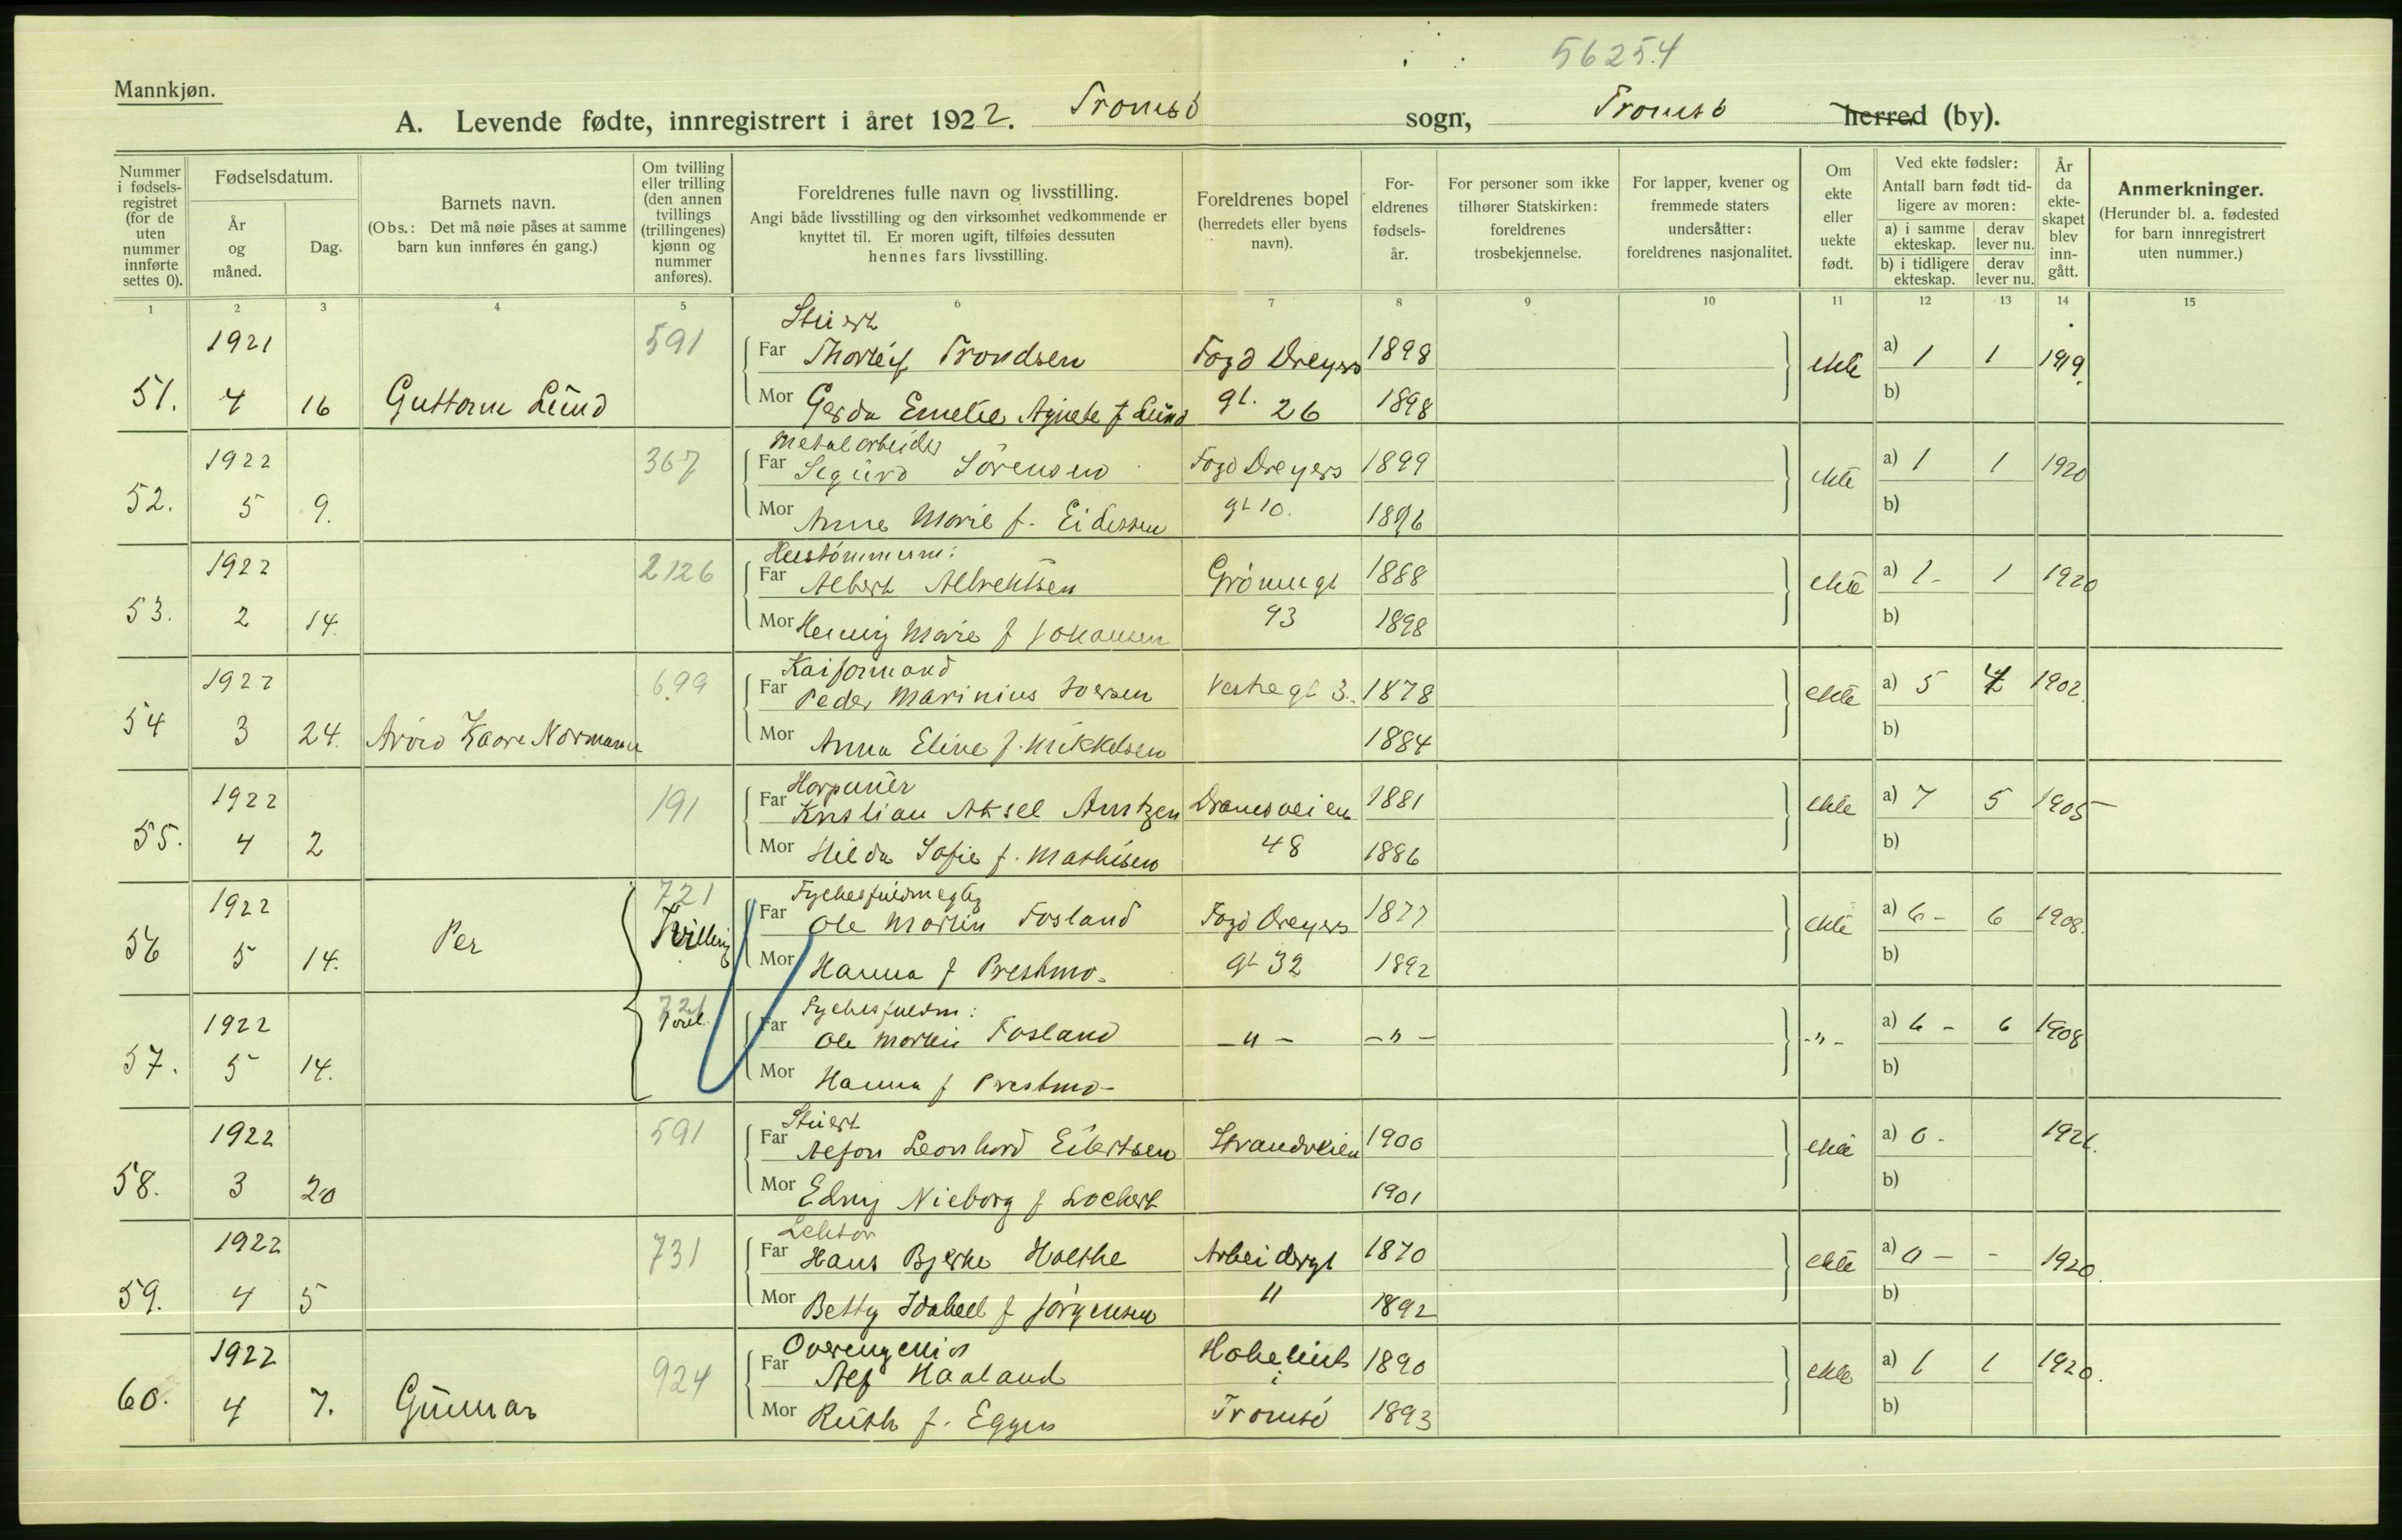 56254
Mannkjøn.
A. Levende fødte, innregistrert i året 1922. Tromsö sogn, Tromsö herred (by).
Nummer i fødsels-registret (for de uten nummer innførte settes 0).
Fødselsdatum.
År og måned.
Dag.
Barnets navn.
(Obs.: Det må nøie påses at samme barn kun innføres én gang.)
Om tvilling eller trilling (den annen tvillings (trillingenes) kjønn og nummer anføres).
Foreldrenes fulle navn og livsstilling.
Angi både livsstilling og den virksomhet vedkommende er knyttet til. Er moren ugift, tilføies dessuten hennes fars livsstilling.
Foreldrenes bopel (herredets eller byens navn).
For-eldrenes fødsels-år.
For personer som ikke tilhører Statskirken: foreldrenes trosbekjennelse.
For lapper, kvener og fremmede staters undersåtter: foreldrenes nasjonalitet.
Om ekte eller uekte født.
Ved ekte fødsler:
Antall barn født tid-ligere av moren:
a) i samme ekteskap. derav lever nu.
b) i tidligere ekteskap. derav lever nu.
År da ekte-skapet blev inn-gått.
Anmerkninger.
(Herunder bl. a. fødested for barn innregistrert uten nummer.)
1 2 3 4 5 6 7 8 9 10 11 12 13 14 15
Stuert
1921 591 Far Thorleif Trondsen Fogd Dreyers 1898 ekte a) 1 1 1919
51. 4 16 Guttorm Lund Mor Gerda Emelie Agnete f Lund gt. 26 1898 b)
Metalarbeider
1922 367 Far Sigurd Sörensen Fogd Dreyers 1899 ekte a) 1 1 1920
52. 5 9. Mor Anna Marie f. Eidessen gt 10. 1896 b)
1922 2126 Far Albert Albrektsen Grönnegt 1888 ekte a) 1 - 1 1920
53. 2 14. Mor Marie f Johansen 93 1898 b)
Kaiformand
1922 699 Far Peder Marinius Iversen Vestregt 3. 1878 ekte a) 5 4 1902
54 3 24. Arvid Kaare Normann Mor Anna Eline f. Mikkelsen 1884 b)
Harpunér
1922 191 Far Kristian Aksel Arntzen Dramsveien 1881 ekte a) 7 5 1905
55. 4 2 Mor Hilda Sofie f. Mathisen 48 1886 b)
721
1922 Tvilling Far Ole Martin Fosland Fogd Dreyers 1877 ekte a) 6 - 6 1908.
56 5 14. Per Mor Hanna f Prestmo. gt 32 1892 b)
721
1922 Far Ole Martin Fosland - " - - " - - " - a) 6 - 6 1908
57. 5 14. Mor Hanna f Prestmo - b)
Stuert
1922 591 Far Leonhard Eilertsen Strandveien 1900 ekte a) 0 - 1921.
58. 3 20 Mor Edny Nieborg f Lockert 1901 b)
Lektor
1922 731 Far Hans Bjerke Holthe Arbeidergt 1870 ekte a) 0 - - 1920.
59. 4 5 Mor Betty f Jörgensen 11 1892 b)
Overingeniör
1922 924 Far Alf Haaland 1890 ekte a) 1 1 1920.
60. 4 7. Gunnar Mor Ruth f. Eggen Tromsö 1893 b)